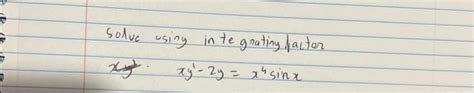 Solve using integrating factor
xy' - 2y = x⁴ sin x